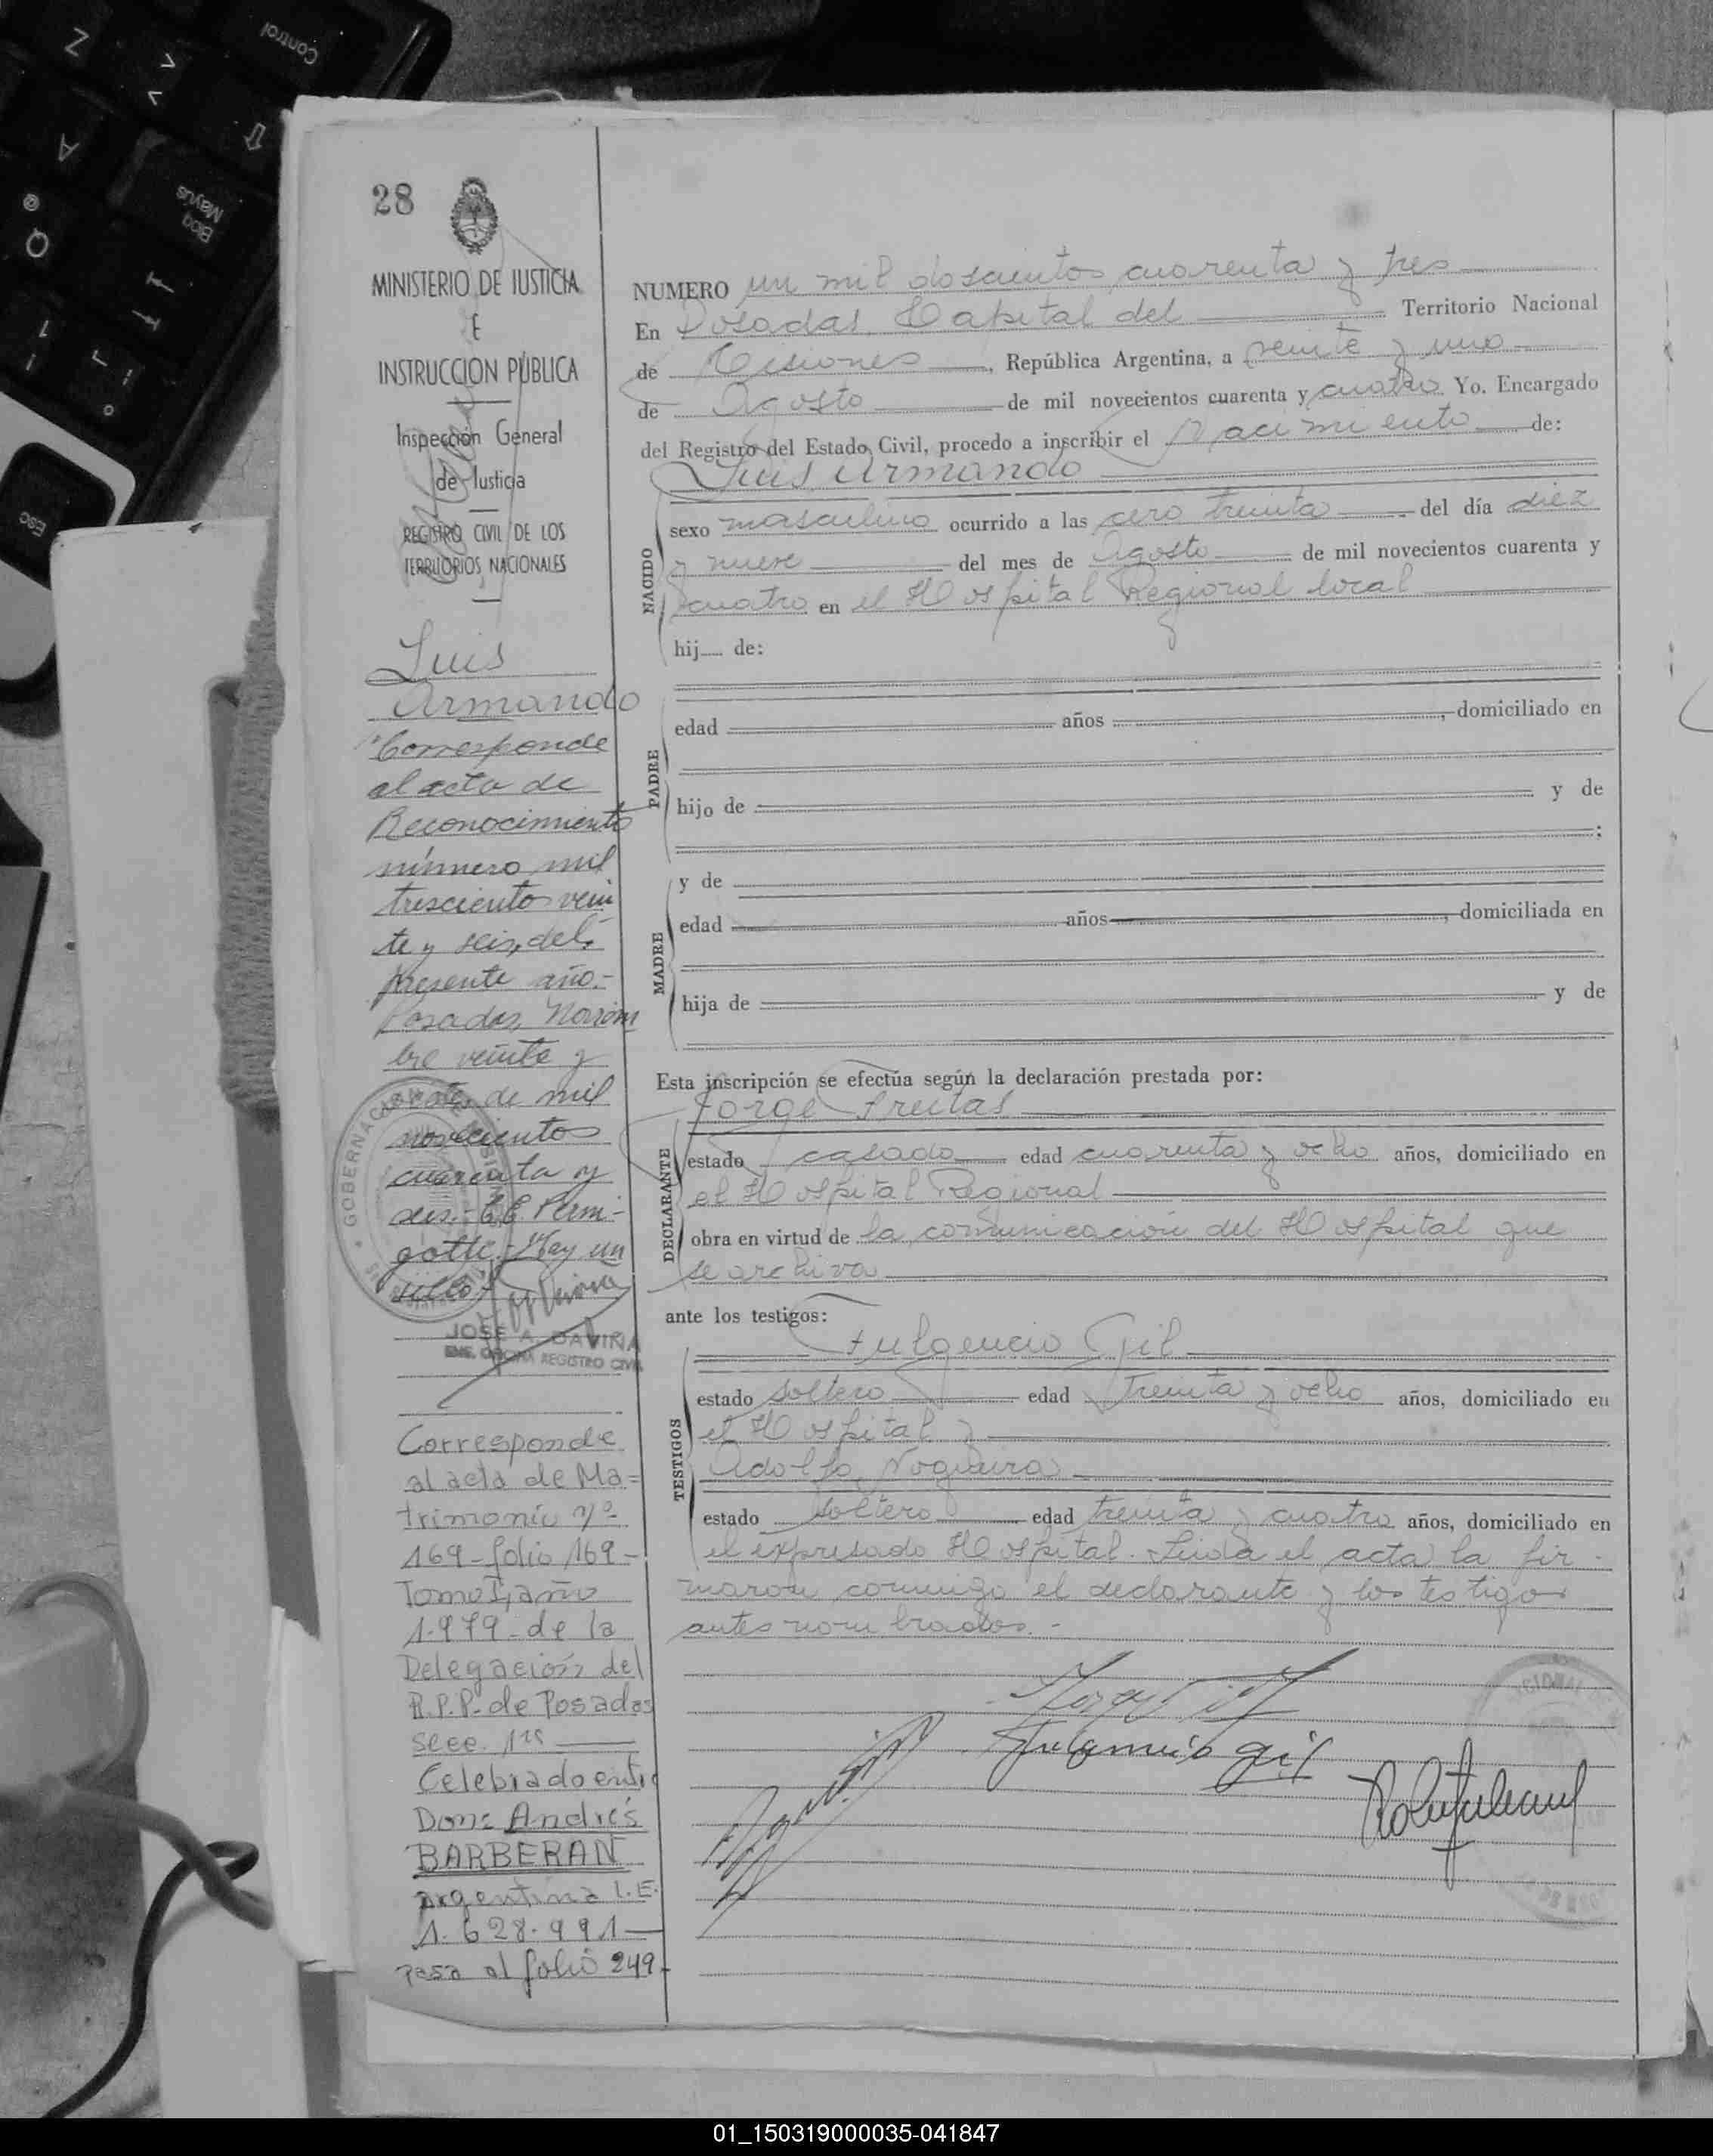 28
MINISTERIO DE JUSTICIA
E
INSTRUCCION PUBLICA
Inspección General
de Justicia
REGISTRO CIVIL DE LOS
TERRITORIOS NACIONALES
Luis
Armando
Corresponde
al acta de
Reconocimiento
número mil
trescientos vein
te y seis, del
presente año.-
Posadas, Noviem
bre veinte y
de mil
novecientos
cuarenta y
Hay un
sello
JOSÉ A. DAVIÑA
ENC. OFICINA REGISTRO CIVIL
Corresponde
al acta de Ma=
trimonio nº
169-folio 169-
Tomo I, año
1.979-de la
Delegación del
R.P.P. de Posadas
Secc. 1ra
Celebrado entre
Don: Andrés
BARBERAN
argentino L.E.
1.628.991
pasa al folio 249-
NUMERO un mil doscientos cuarenta y tres
En Posadas, Capital del Territorio Nacional
de Misiones, República Argentina, a veinte y uno
de Agosto de mil novecientos cuarenta y cuatro Yo. Encargado
del Registro del Estado Civil, procedo a inscribir el Nacimiento de:
Luis Armando
NACIDO
sexo masculino ocurrido a las cero treinta del día diez
y nueve del mes de Agosto de mil novecientos cuarenta y
cuatro en el Hospital Regional local
hij de:
PADRE
edad años , domiciliado en
hijo de y de
;
MADRE
y de
edad años , domiciliada en
hija de y de
Esta inscripción se efectúa según la declaración prestada por:
DECLARANTE
Jorge Freitas
estado casado edad cuarenta y ocho años, domiciliado en
el Hospital Regional
obra en virtud de la comunicación del Hospital que
se archiva
ante los testigos:
TESTIGOS
Fulgencio Gil
estado soltero edad treinta y ocho años, domiciliado en
el Hospital y
Adolfo Nogueira
estado soltero edad treinta y cuatro años, domiciliado en
el expresado Hospital. Leida el acta la fir-
maron conmigo el declarante y los testigos
antes nombrados.-
Fulgencio Gil
01_150319000035-041847